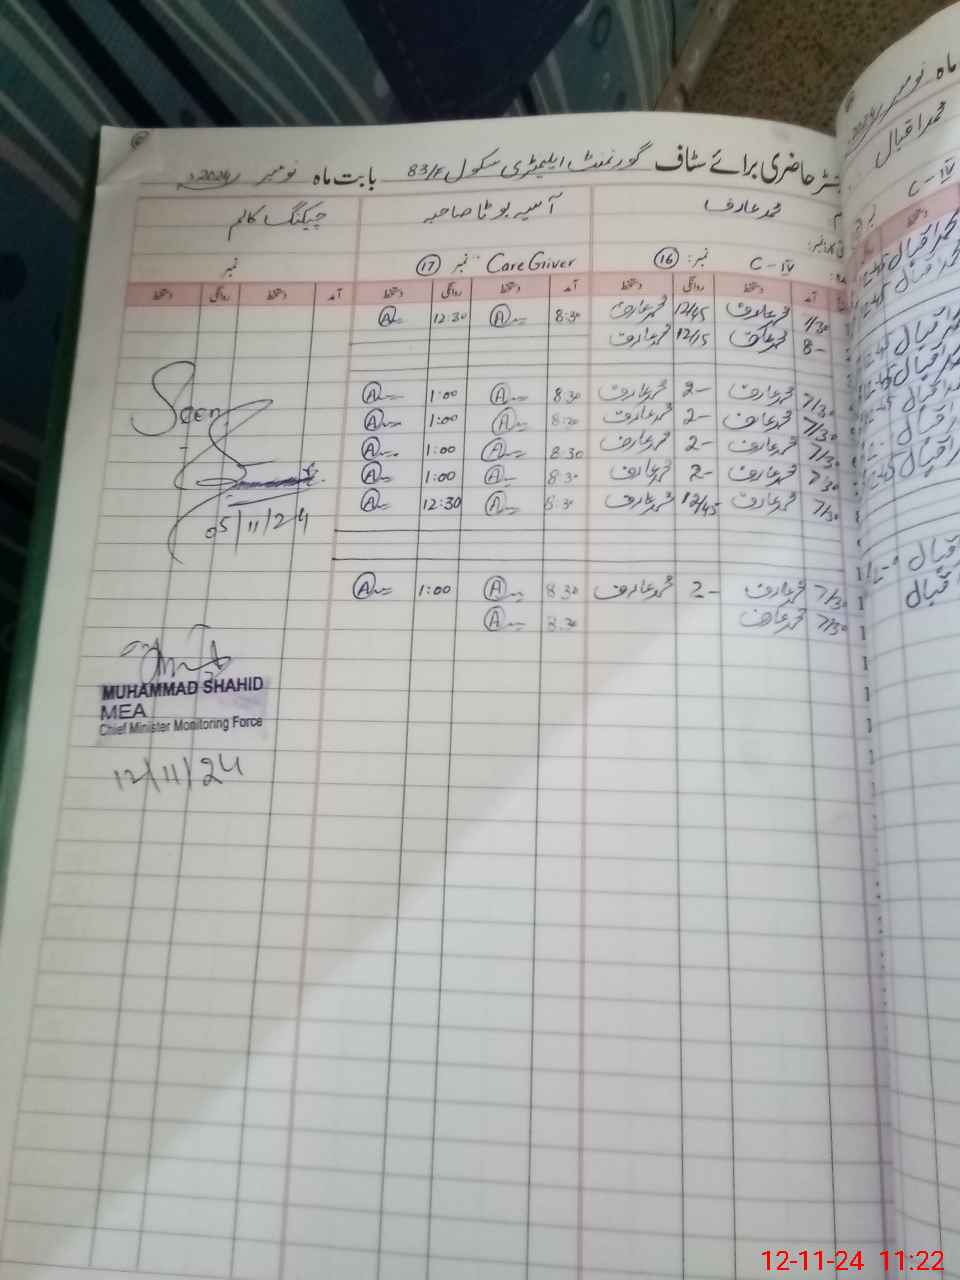 رجسٹر حاضری برائے سٹاف گورنمنٹ ایلیمنٹری سکول 83/F بابت ماہ نومبر 2024ء
محمد عارف آسیہ بوٹا صاحبہ چیکنگ کالم
C-IV نمبر: 16 Care Giver نمبر 17 نمبر
آمد دستخط روانگی دستخط آمد دستخط روانگی دستخط آمد دستخط روانگی دستخط
7/30 محمد عارف 12/45 محمد عارف 8:30 A 12:30 A
8- محمد عارف 12/15 محمد عارف
7/30 محمد عارف 2- محمد عارف 8:30 A 1:00 A
7/30 محمد عارف 2- محمد عارف 8:30 A 1:00 A
7/30 محمد عارف 2- محمد عارف 8:30 A 1:00 A
7/30 محمد عارف 2- محمد عارف 8:30 A 1:00 A
7/30 محمد عارف 12/45 محمد عارف 8:30 A 12:30 A
7/30 محمد عارف 2- محمد عارف 8:30 A 1:00 A
7/30 محمد عارف 8:30 A
Seen
05/11/24
MUHAMMAD SHAHID
MEA
Chief Minister Monitoring Force
12/11/24
ماہ نومبر 2024ء
محمد اقبال
C-IV
12-11-24 11:22